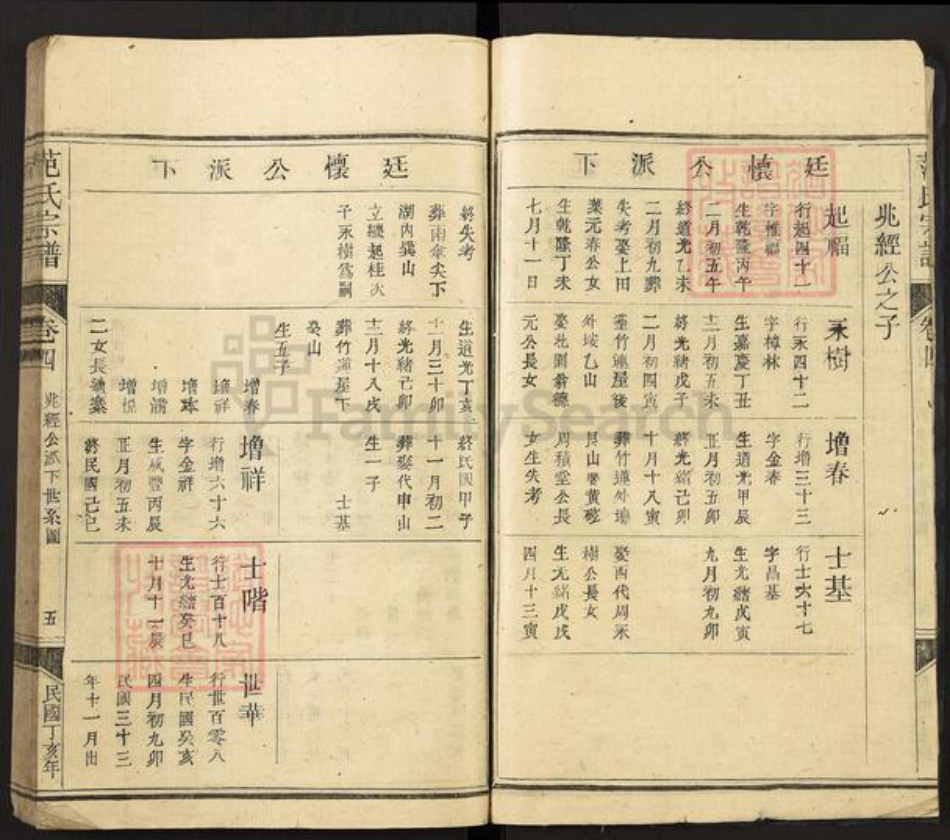 廷懷公派下
兆經公之子
起福
行起四十一
字惟福
生乾隆丙午
二月初五午
終道光乙未
二月初九葬
失考娶上田
葉元春公女
生乾隆丁未
七月十一日
永樹
行永四十二
字樟林
生嘉慶丁丑
十二月初五未
終光緒戊子
二月初四寅
葬竹蓮屋後
外垅乙山
娶社園翁德
元公長女
增春
行增三十三
字金春
生道光甲辰
正月初五卯
終光緒己卯
十月十八寅
葬竹蓮外塆
艮山娶黄砂
周積堂公長
女生失考
士基
行士六十七
字昌基
生光緒戊寅
九月初九卯
娶西代周永
樹公長女
生光緒戊戌
四月十三寅
廷懷公派下
終失考
葬雨傘尖下
湖內巽山
立繼起桂次
子永樹為嗣
生道光丁亥
十一月三十卯
終光緒己卯
十二月十八戌
葬竹蓮屋下
癸山
生五子
增春
增祥
增珠
增滿
增悦
二女長適葉
終民國甲子
十一月初二
葬娶代申山
生一子
士基
增祥
行增六十六
字金祥
生咸豐丙辰
正月初五未
終民國己巳
士階
行士百十八
生光緒癸巳
十月十一辰
世華
行世百零八
生民國癸亥
四月初九卯
民國三十三
年十一月出
范氏宗譜
卷四
兆經公派下世系圖
五
民國丁亥年
范氏宗譜
卷四
FamilySearch